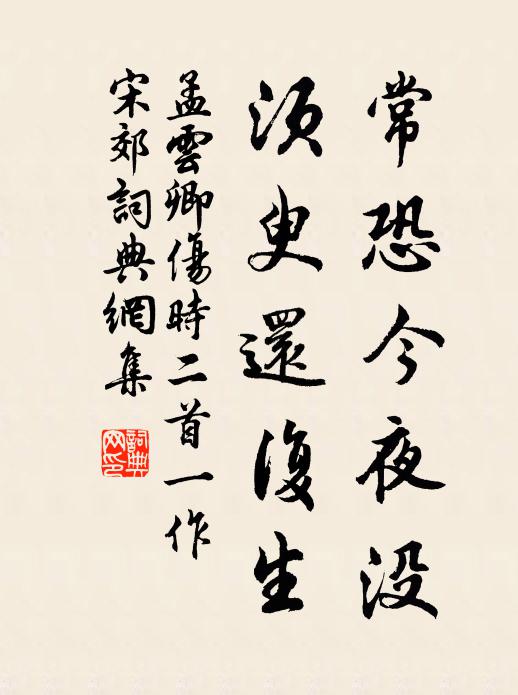 常恐今夜没
須臾還復生
孟雲卿傷時二首一作
宋郊詞典網集
詞典网印